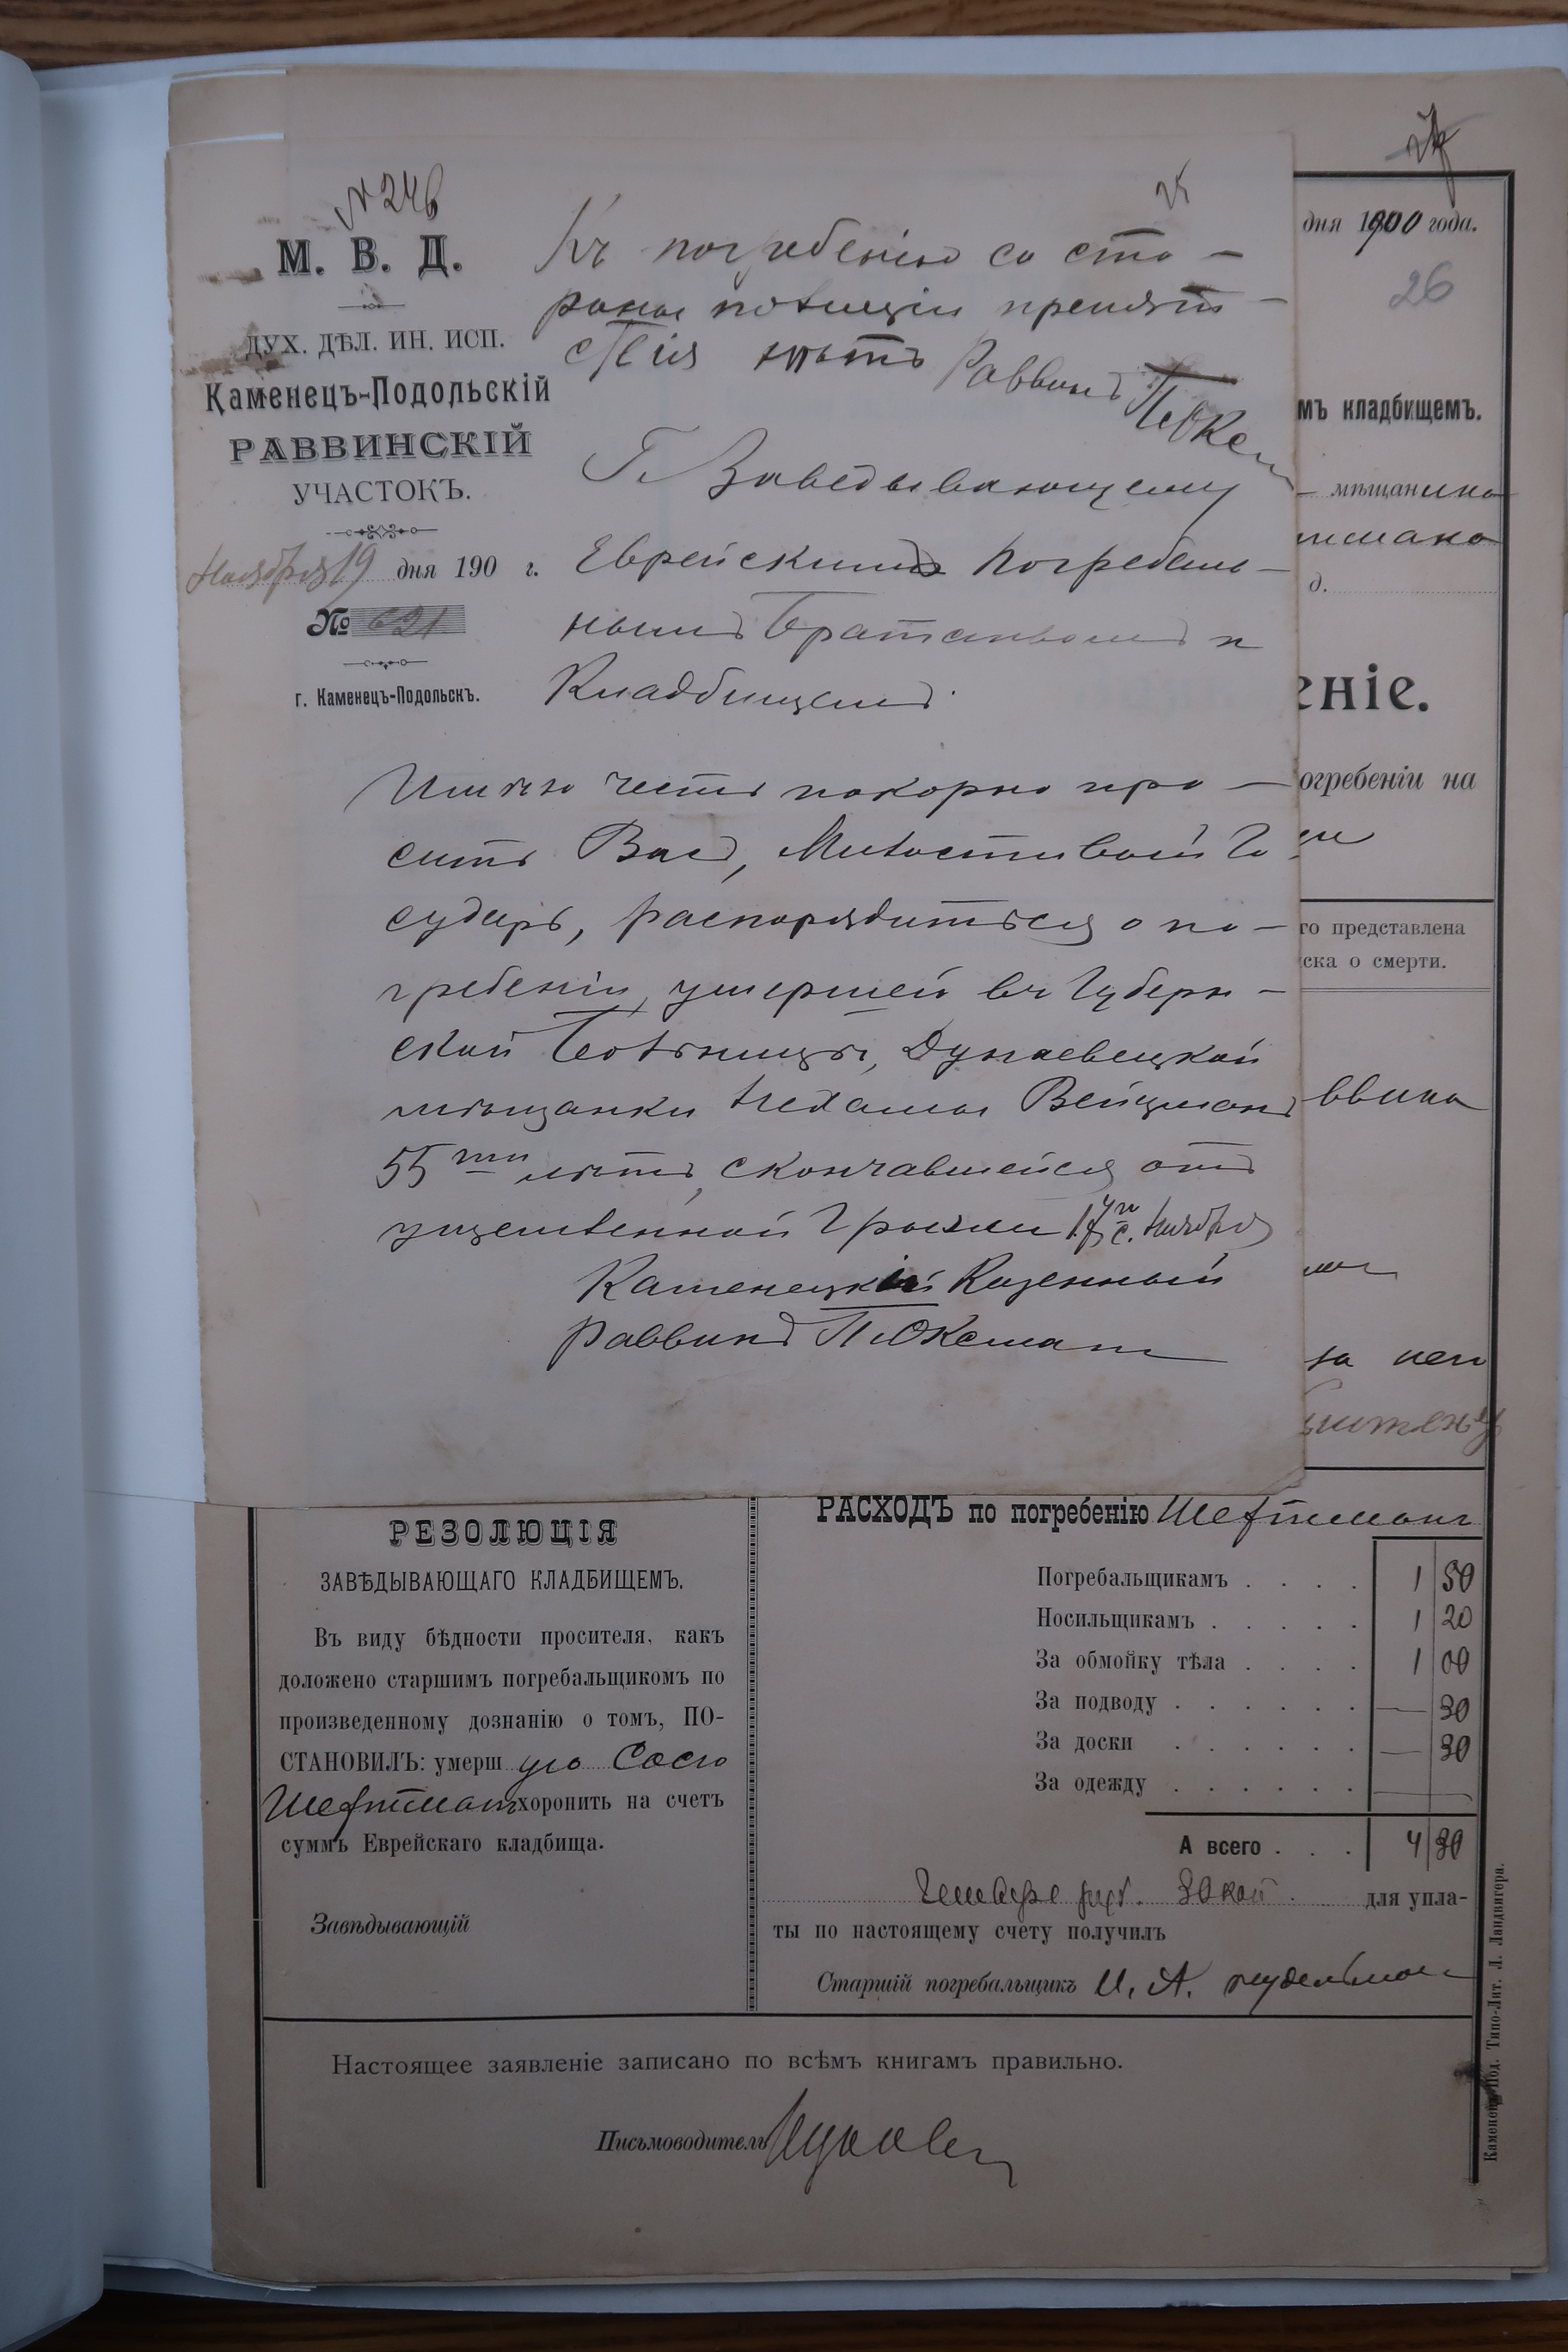 № 246
М. В. Д.
ДУХ. ДѢЛ. ИН. ИСП.
Каменецъ-Подольскій
РАВВИНСКІЙ
УЧАСТОКЪ.
Ноября 19 дня 190 г.
№ 621
г. Каменецъ-Подольскъ.
25
Къ погребенію со сто-
роны полиціи препят-
ствія нѣтъ Раввинъ
Г. Заведывающему
Еврейскимъ Погребаль-
нымъ Братствомъ и
Кладбищемъ.
Имѣю честь покорно про-
сить Васъ, Милостивый Го
сударь, распорядиться о по-
гребеніи, умершей въ Губерн-
ской Больницѣ, Дунаевецкой
мѣщанки Нехамы Вейцманъ
55ти лѣтъ, скончавшейся отъ
ущемленной грыжи с. Ноября
Каменецкій Казенный
Раввинъ
дня 1900 года.
26
мъ кладбищемъ.
мѣщанина
тмана
д.
еніе.
огребеніи на
го представлена
ска о смерти.
ввина
за него
РЕЗОЛЮЦІЯ
ЗАВѢДЫВАЮЩАГО КЛАДБИЩЕМЪ.
Въ виду бѣдности просителя, какъ
доложено старшимъ погребальщикомъ по
произведенному дознанію о томъ, ПО-
СТАНОВИЛЪ: умерш ую Сосю
Шефтманъ хоронить на счетъ
суммъ Еврейскаго кладбища.
Завѣдывающій
РАСХОДЪ по погребенію Шефтманъ
Погребальщикамъ . . . . 1 50
Носильщикамъ . . . . . 1 20
За обмойку тѣла . . . . 1 00
За подводу . . . . . . — 30
За доски . . . . . . — 30
За одежду . . . . . . —
А всего . . . 4 30
Четыре руб. 30 коп. для упла-
ты по настоящему счету получилъ
Старшій погребальщикъ И. А.
Настоящее заявленіе записано по всѣмъ книгамъ правильно.
Письмоводитель
Каменецъ-Под. Типо-Лит. Л. Ландвигера.